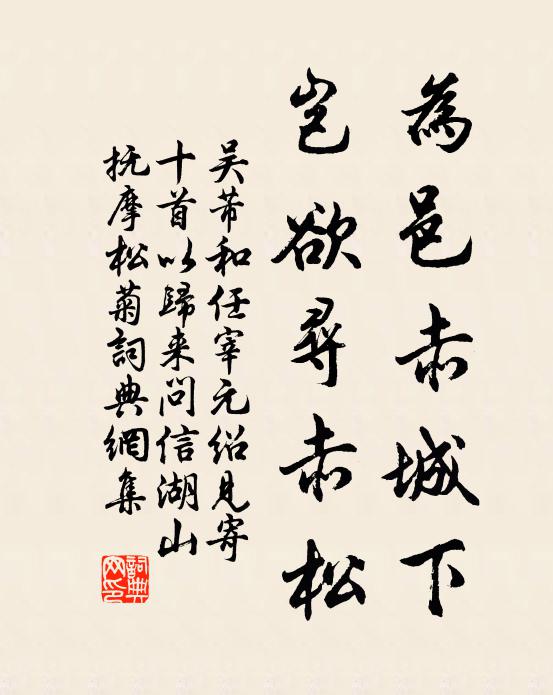 為邑赤城下
豈欲尋赤松
吴芾和任宰元绍見寄
十首以歸来问信湖山
抚摩松菊詞典網集
詞典
网印